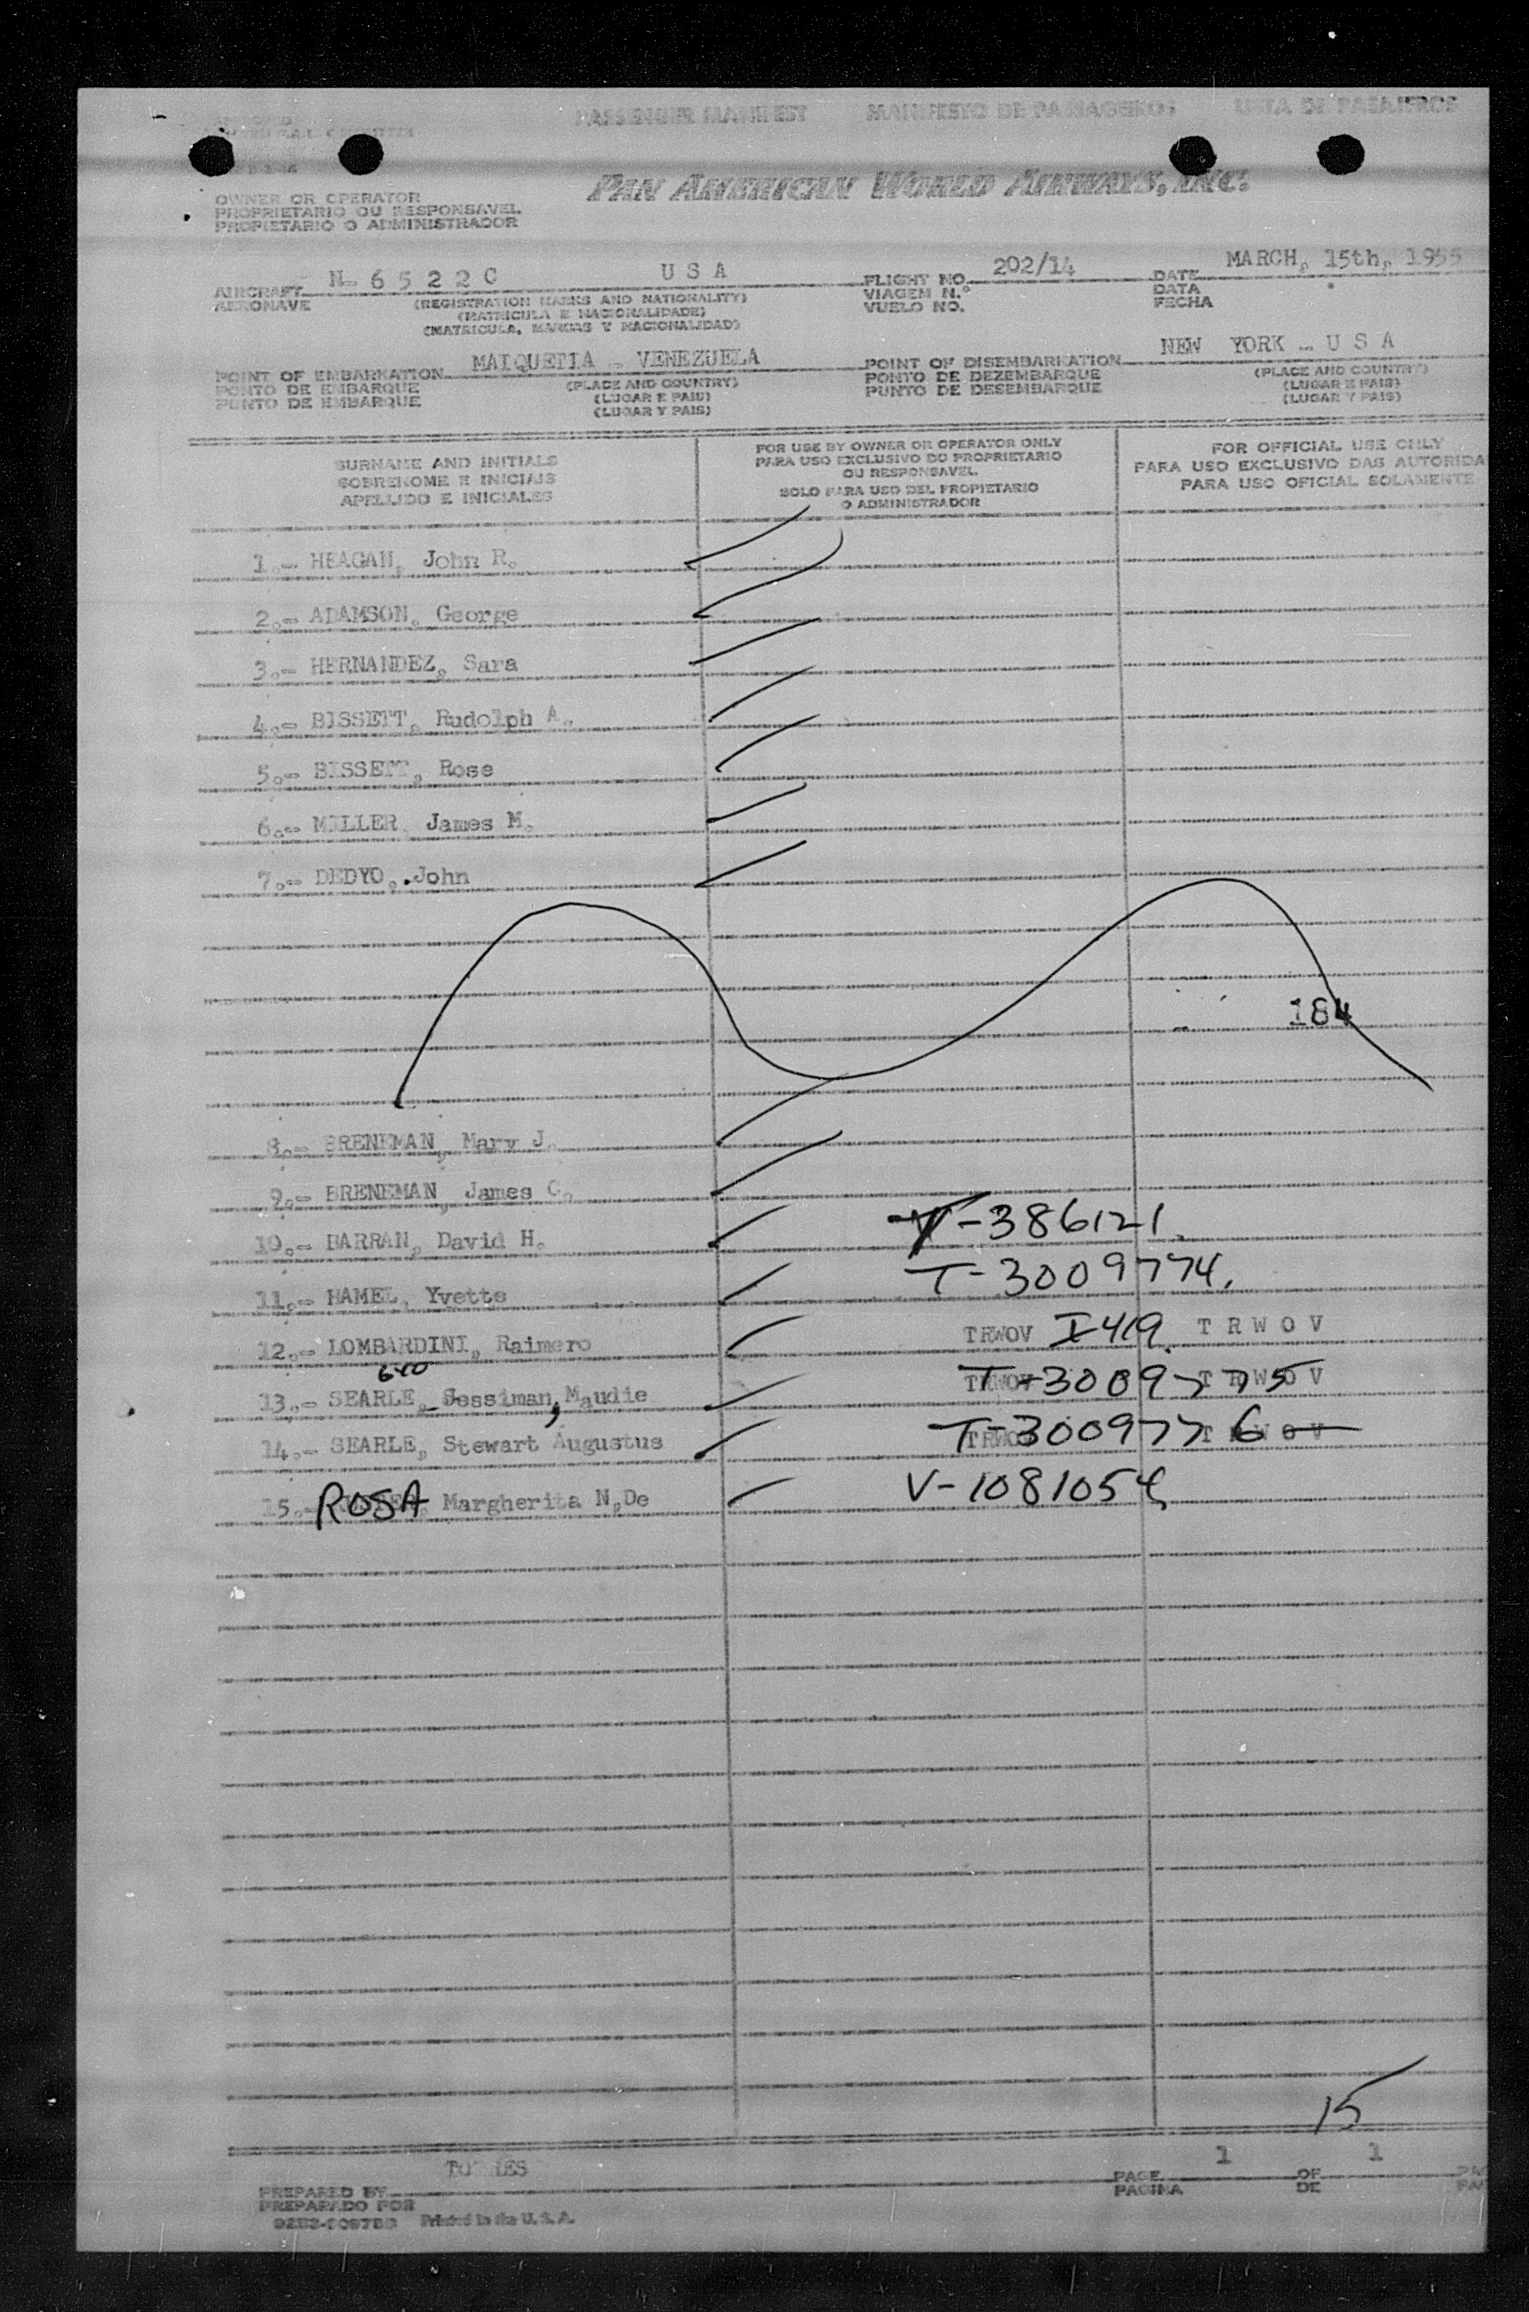 PASSENGER MANIFEST MANIFESTO DE PASSAGEIROS LISTA DE PASAJEROS
PAN AMERICAN WORLD AIRWAYS, INC.
OWNER OR OPERATOR
PROPRIETARIO OU RESPONSAVEL
PROPIETARIO O ADMINISTRADOR
AIRCRAFT N- 6 5 2 2 C U S A FLIGHT NO. 202/14 DATE MARCH, 15th, 1955
AERONAVE (REGISTRATION MARKS AND NATIONALITY) VIAGEM N.° DATA
(MATRICULA E NACIONALIDADE) VUELO NO. FECHA
(MATRICULA, MARCAS Y NACIONALIDAD)
POINT OF EMBARKATION MAIQUETIA - VENEZUELA POINT OF DISEMBARKATION NEW YORK - U S A
PONTO DE EMBARQUE (PLACE AND COUNTRY) PONTO DE DEZEMBARQUE (PLACE AND COUNTRY)
PUNTO DE EMBARQUE (LUGAR E PAIS) PUNTO DE DESEMBARQUE (LUGAR E PAIS)
(LUGAR Y PAIS) (LUGAR Y PAIS)
SURNAME AND INITIALS
SOBRENOME E INICIAIS
APELLIDO E INICIALES
FOR USE BY OWNER OR OPERATOR ONLY
PARA USO EXCLUSIVO DO PROPRIETARIO
OU RESPONSAVEL
SOLO PARA USO DEL PROPIETARIO
O ADMINISTRADOR
FOR OFFICIAL USE ONLY
PARA USO EXCLUSIVO DAS AUTORIDA
PARA USO OFICIAL SOLAMENTE
1.- HEAGAN, John R.
2.- ADAMSON, George
3.- HERNANDEZ, Sara
4.- BISSETT, Rudolph A.
5.- BISSETT, Rose
6.- MILLER, James M.
7.- DEDYO, John
184
8.- BRENEMAN, Mary J.
9.- BRENEMAN, James C.
10.- BARRAN, David H. V-386121
11.- HAMEL, Yvette T-3009774
12.- LOMBARDINI, Raimero TRWOV I-419 T R W O V
13.- SEARLE, Jessiman, Maudie TRWOV T-3009775 T R W O V
14.- SEARLE, Stewart Augustus TRWOV T-3009776 T R W O V
15.- ROSA, Margherita N,De V-1081054
15
TORRES
PREPARED BY PAGE 1 OF 1
PREPARADO POR PAGINA DE
Printed in the U. S. A.